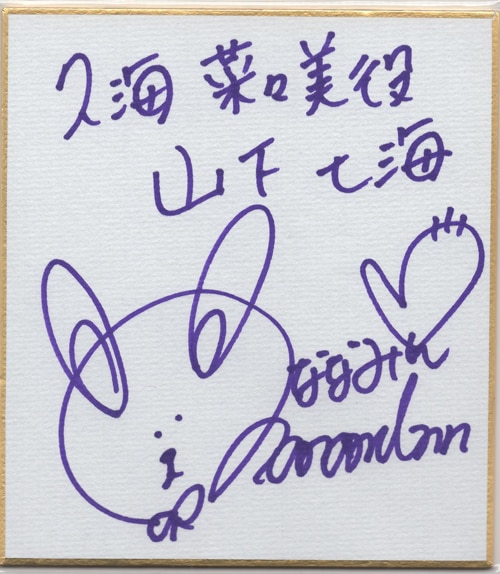 久海菜々美役
山下七海
ななみん